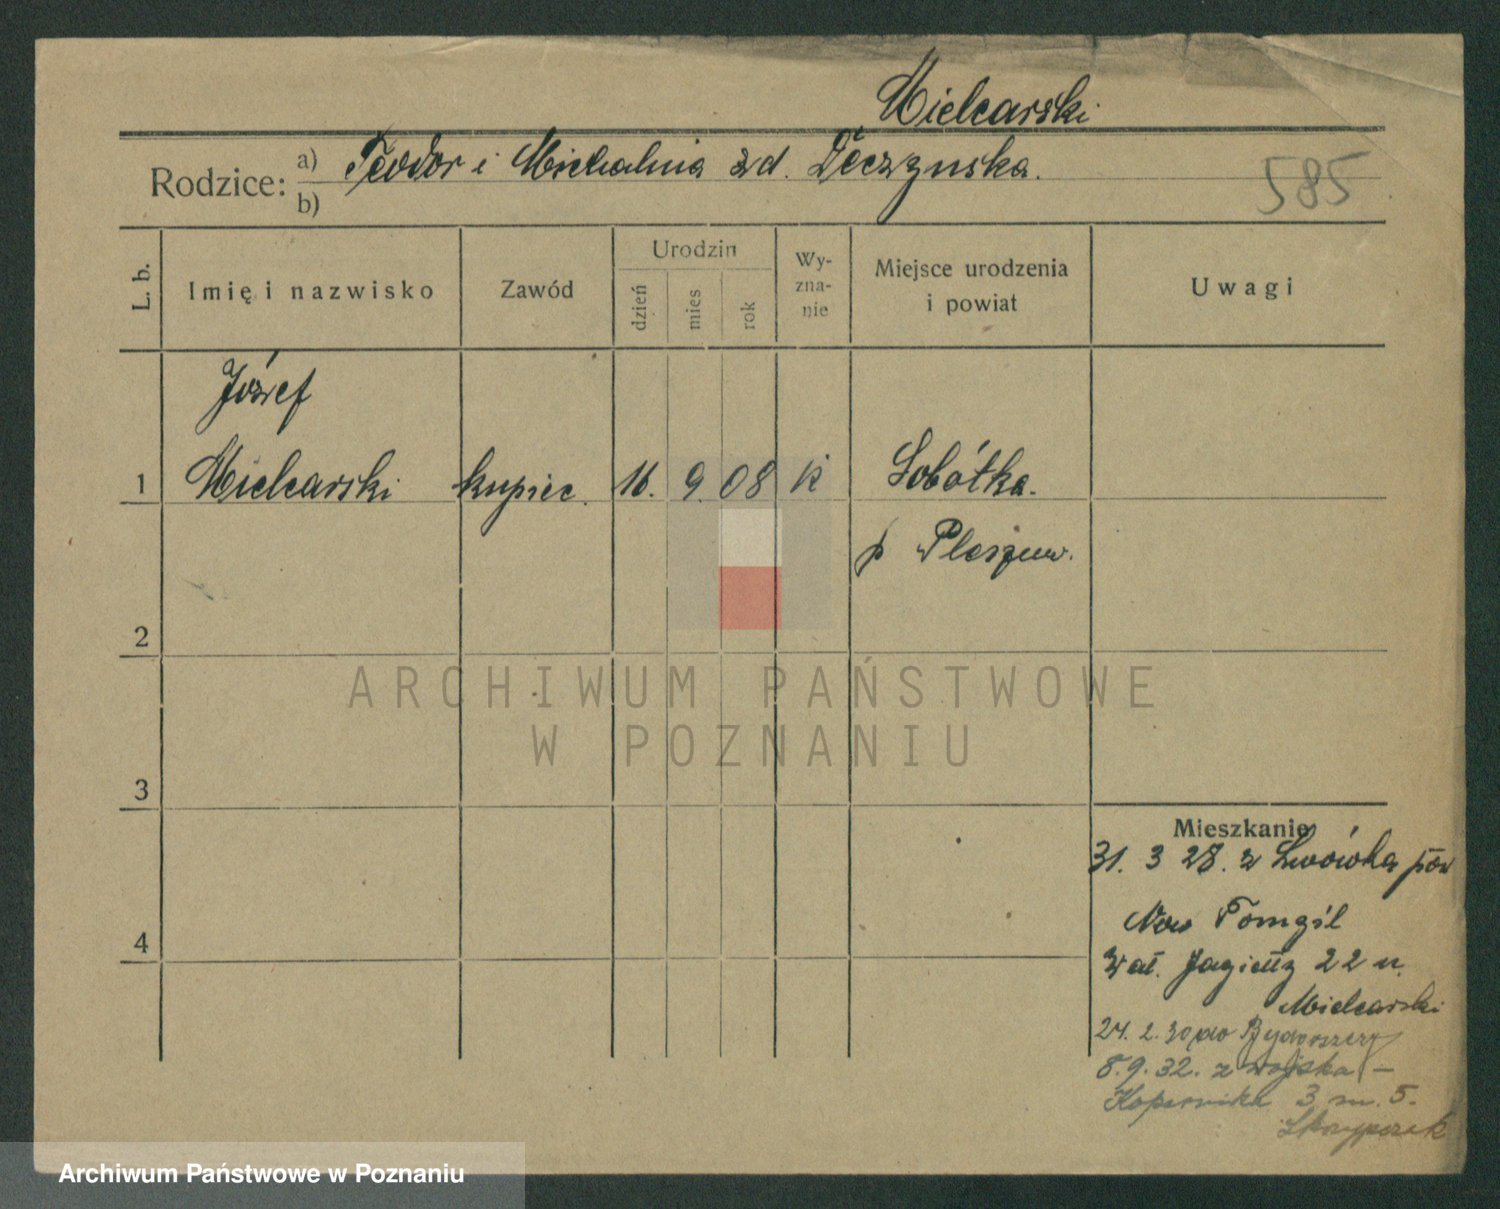 Mielcarski
Rodzice: a) Teodor i Michalina zd.
b)
585
L. b.
Imię i nazwisko
Zawód
Urodzin
dzień
mies
rok
Wy-
zna-
nie
Miejsce urodzenia
i powiat
Uwagi
Józef
1 Mielcarski kupiec. 16. 9. 08 K Sobótka.
p Pleszew.
2
ARCHIWUM PAŃSTWOWE
W POZNANIU
3
Mieszkanie
31. 3 28. z Lwówka pow
Now Tomyśl
4
Wał. Jagiełły 22 u.
Mielcarski
24. 2. 30 do Bydgoszczy
8. 9. 32. z wojska –
Kopernika 3 m. 5.
Skrzypczak
Archiwum Państwowe w Poznaniu